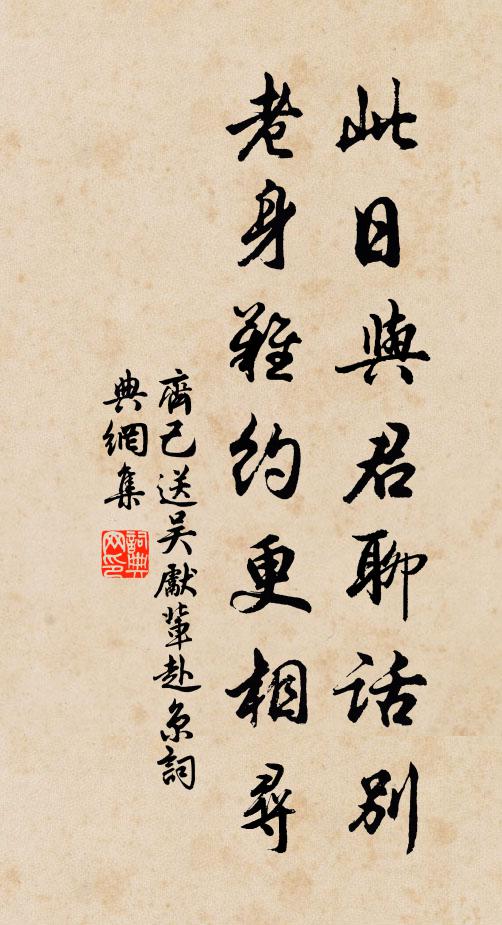 此日與君聊話別
老身難約更相尋
齊己送吳獻輩赴京詞
典網集
詞典
网印